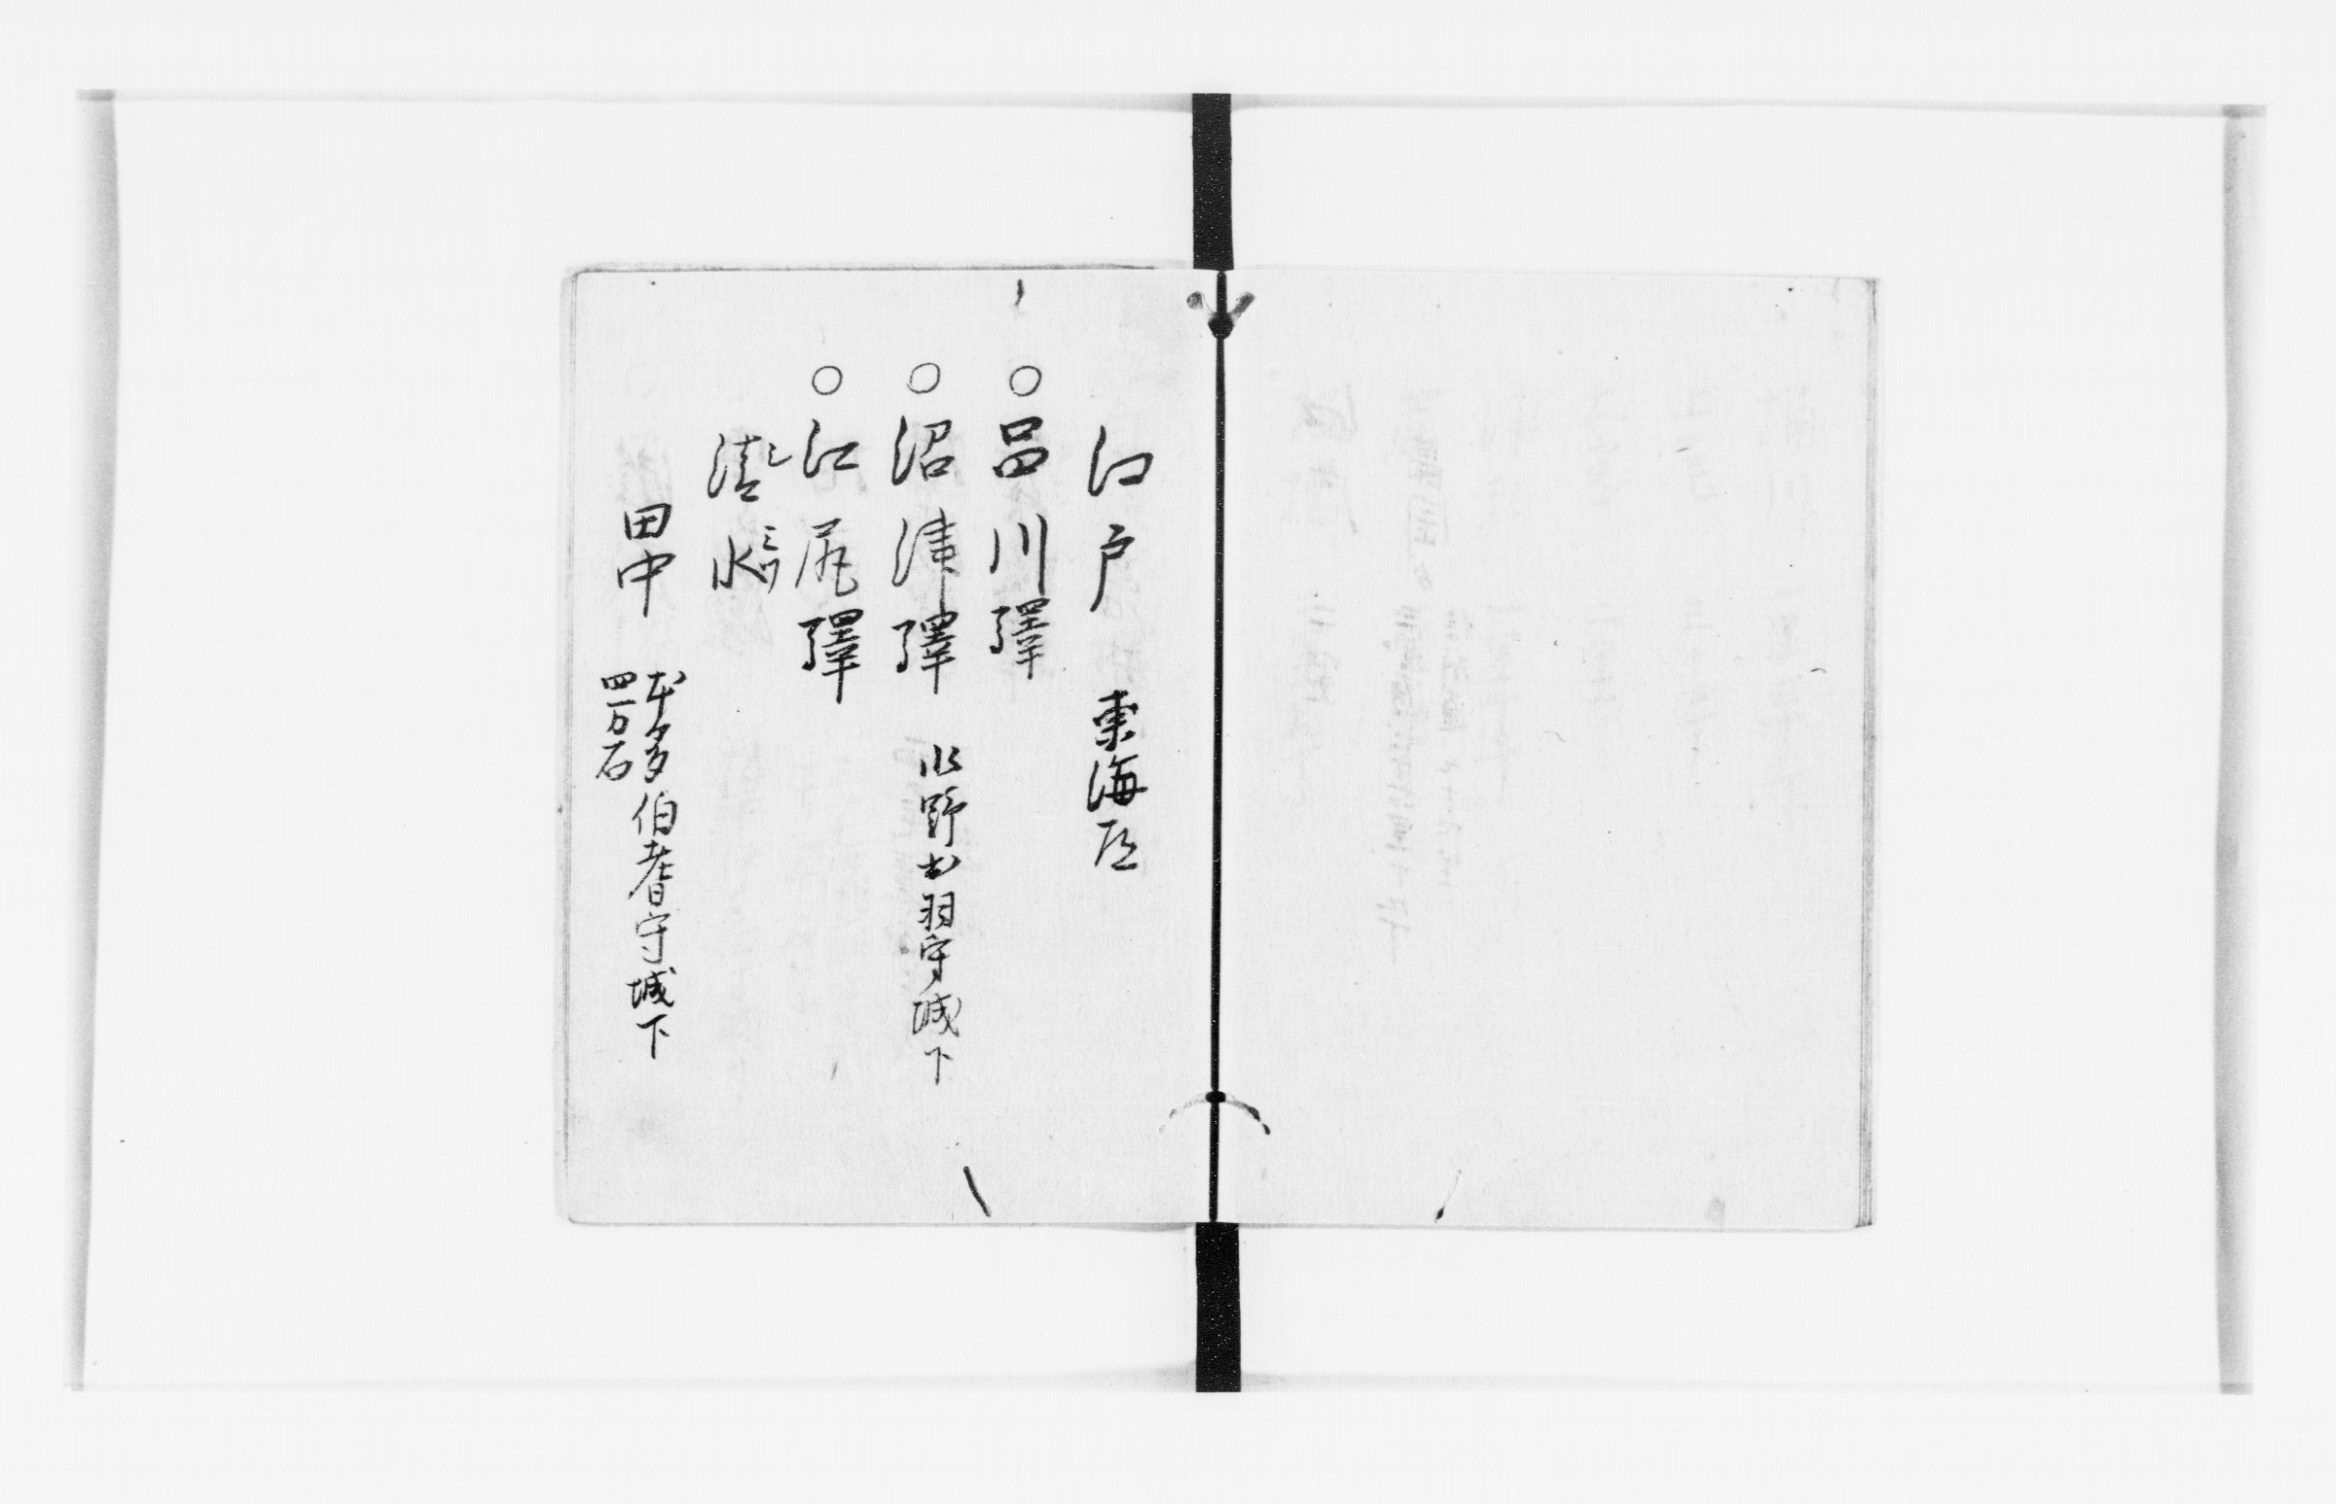 江戸　東海道
○品川驛
○沼津驛　水野出羽守城下
○江尻驛
清水
シミツ
田中　本多伯耆守城下
四万石